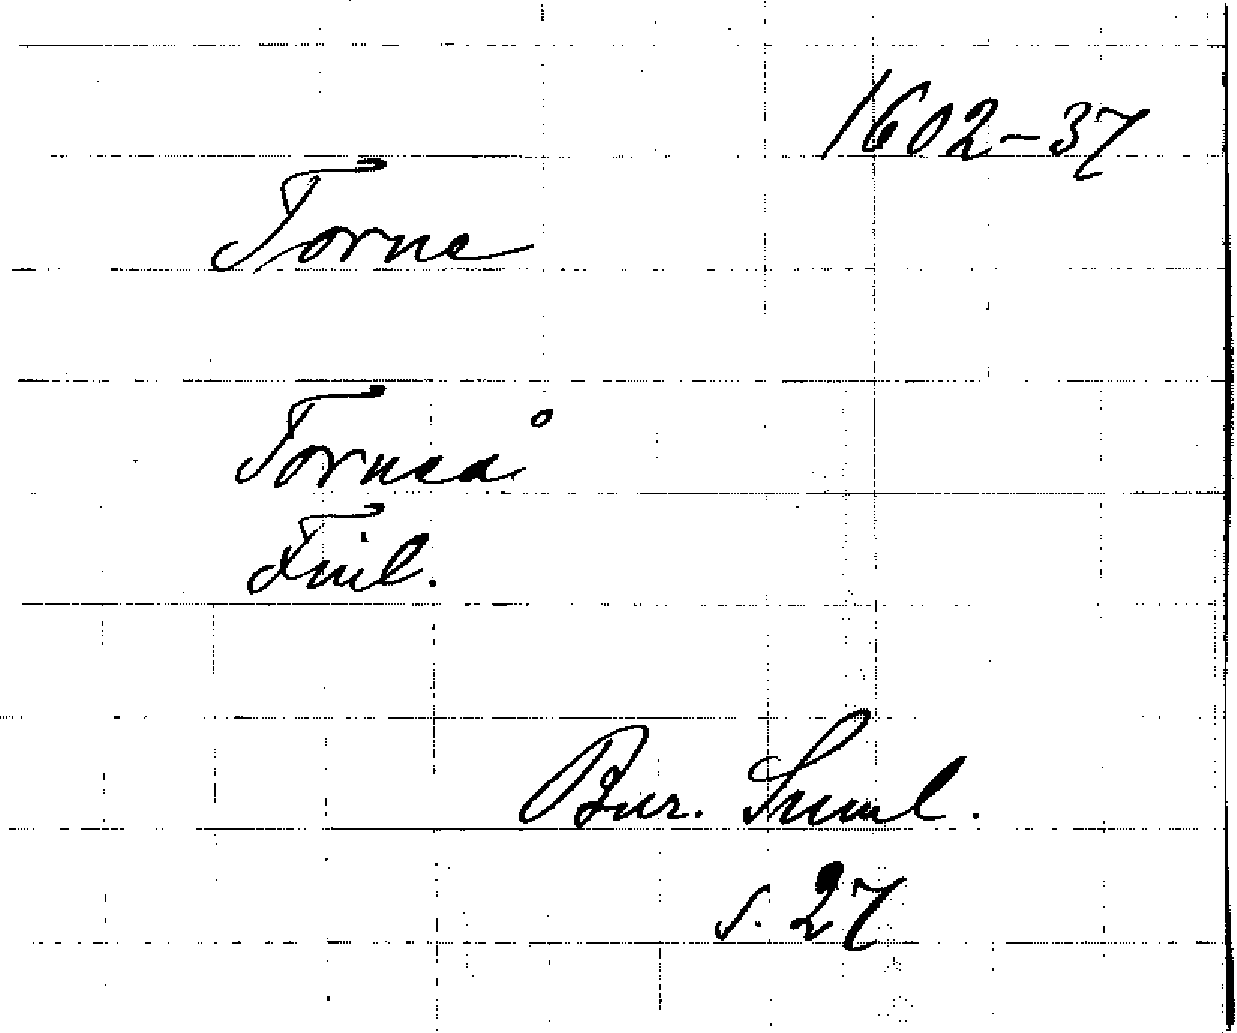 1602-37
Torne
Torneå
Finl.
Bur. Suml.
s. 27